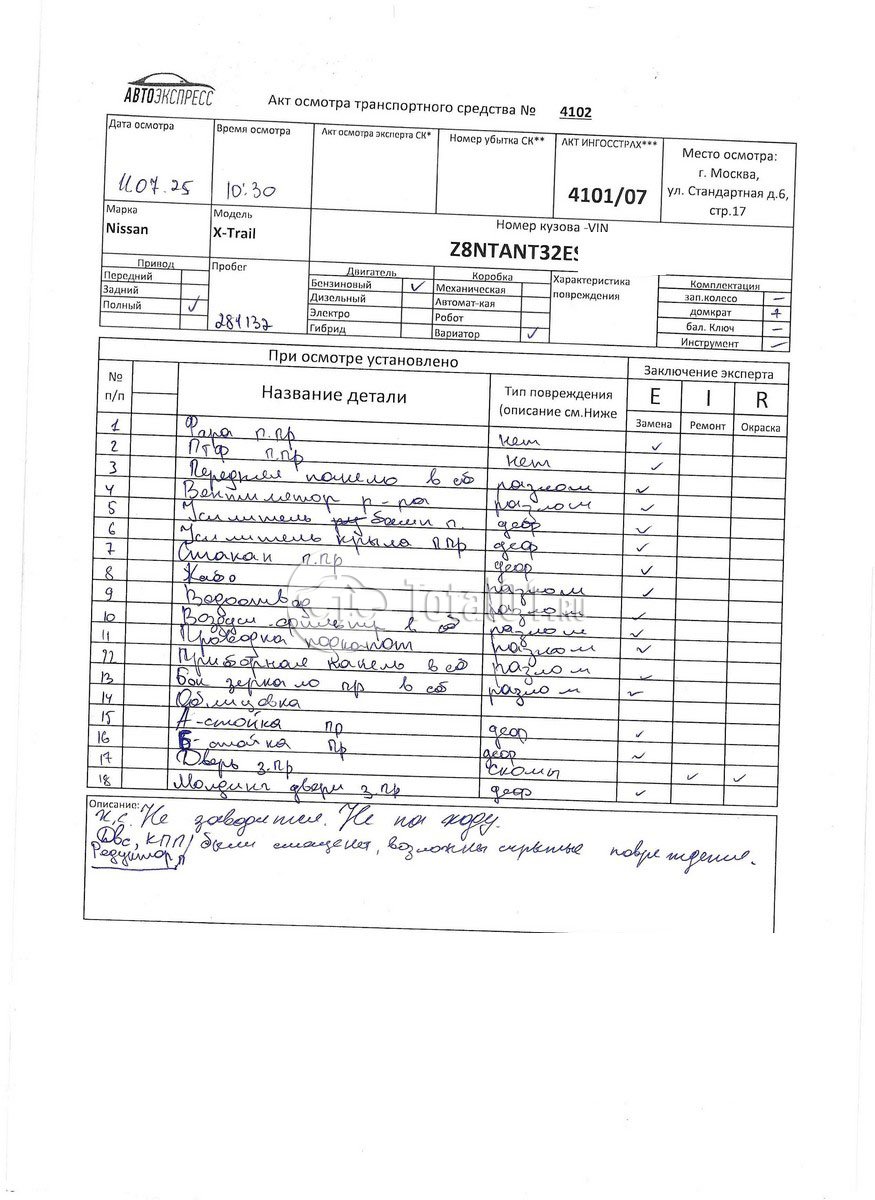 АВТОЭКСПРЕСС
Акт осмотра транспортного средства № 4102
Дата осмотра
11.07.25
Время осмотра
10:30
Акт осмотра эксперта СК*
Номер убытка СК**
АКТ ИНГОССТРАХ***
4101/07
Место осмотра:
г. Москва,
ул. Стандартная д.6,
стр.17
Марка
Nissan
Модель
X-Trail
Номер кузова -VIN
Z8NTANT32ES
Привод
Передний
Задний
Полный ✓
Пробег
281132
Двигатель
Бензиновый ✓
Дизельный
Электро
Гибрид
Коробка
Механическая
Автомат-кая
Робот
Вариатор ✓
Характеристика
повреждения
Комплектация
зап.колесо –
домкрат +
бал. Ключ –
Инструмент –
При осмотре установлено
Заключение эксперта
№
п/п
Название детали
Тип повреждения
(описание см.Ниже
E I R
Замена Ремонт Окраска
1 Фара п.пр нет ✓
2 ПТФ п.пр нет ✓
3 Передняя панель в сб разлом ✓
4 Вентилятор р-ра разлом ✓
5 Усилитель п. деф ✓
6 Усилитель крыла ппр деф ✓
7 Стакан п.пр деф ✓
8 Жабо разлом ✓
9 Водоотвод разлом ✓
10 в сб разлом ✓
11 Проводка подкапот разлом ✓
12 Приборная панель в сб разлом ✓
13 Бок зеркало пр в сб разлом ✓
14 Облицовка
15 А-стойка пр деф ✓
16 Б-стойка пр деф ✓
17 Дверь з.пр сколы ✓ ✓
18 Молдинг двери з.пр деф ✓
Описание:
Не заводится. Не на ходу.
Двс, КПП, были смещены, возможны скрытые повреждения.
Редуктор
TotalOff.RU